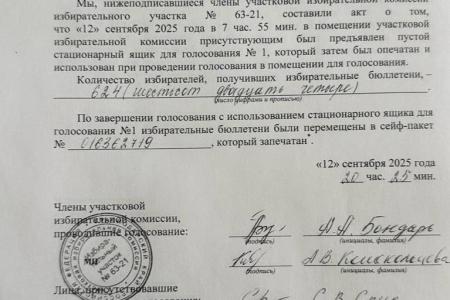 Мы, нижеподписавшиеся члены участковой избирательной комиссии
избирательного участка № 63-21, составили акт о том,
что «12» сентября 2025 года в 7 час. 55 мин. в помещении участковой
избирательной комиссии присутствующим был предъявлен пустой
стационарный ящик для голосования № 1, который затем был опечатан и
использован при проведении голосования в помещении для голосования.
Количество избирателей, получивших избирательные бюллетени, –
624 (шестисот двадцать четыре)
(число цифрами и прописью)
По завершении голосования с использованием стационарного ящика для
голосования №1 избирательные бюллетени были перемещены в сейф-пакет
№ 016362719, который запечатан*.
«12» сентября 2025 года
20 час. 25 мин.
Члены участковой
избирательной комиссии,
проводившие голосование:
А.А. Бондарь
(подпись) (инициалы, фамилия)
МП
А.В.
(подпись) (инициалы, фамилия)
Избирательный
участок
№ 63-21
Лица, присутствовавшие